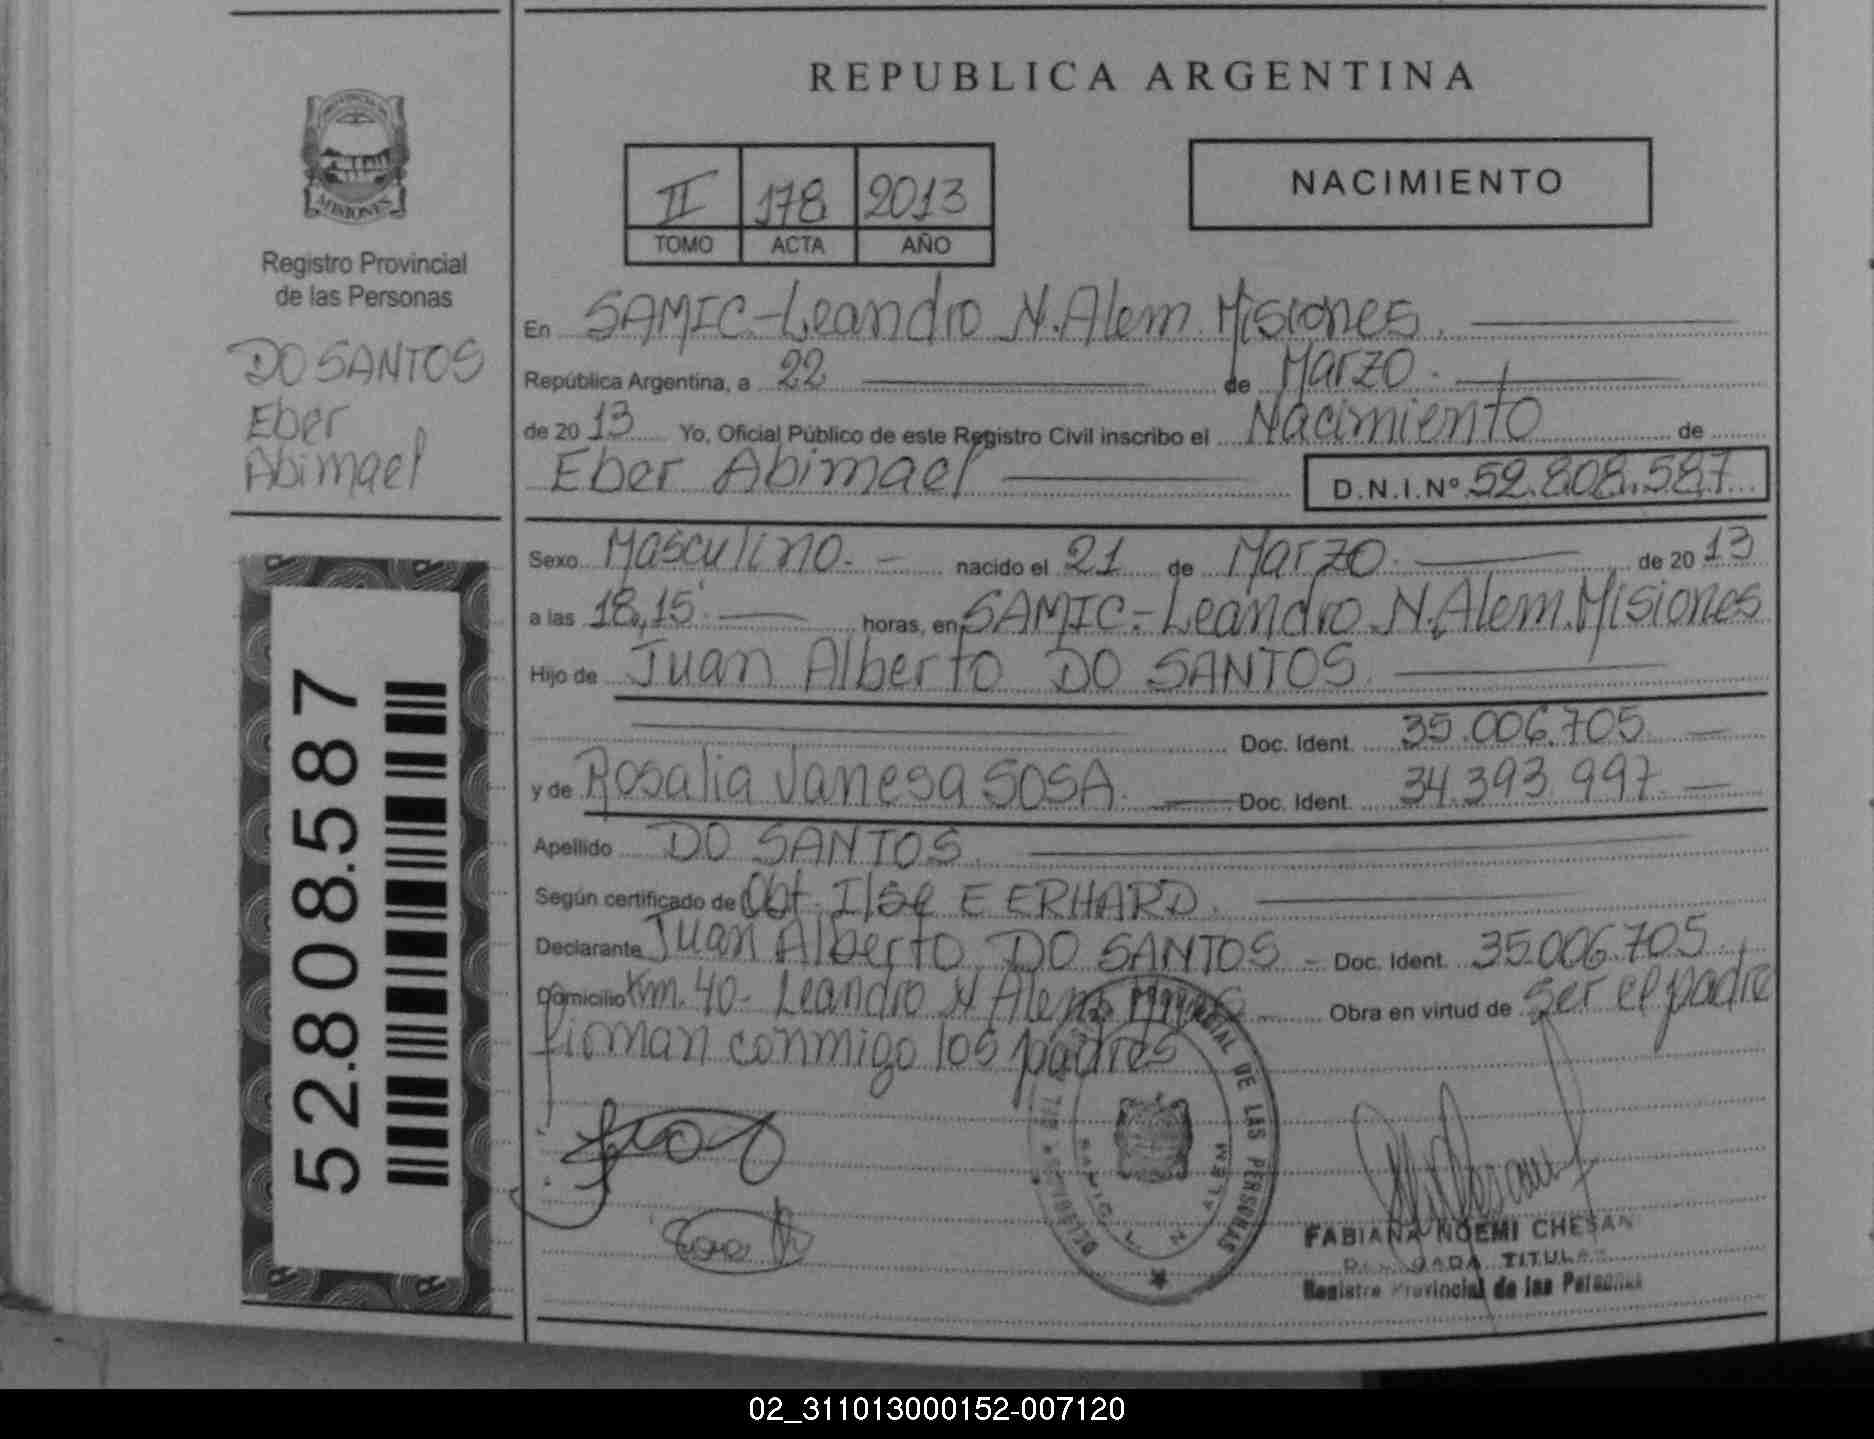 REPUBLICA ARGENTINA
NACIMIENTO
II 178 2013
TOMO ACTA AÑO
MISIONES
Registro Provincial
de las Personas
DO SANTOS
Eber
Abimael
52.808.587
En SAMIC-Leandro N.Alem Misiones.
República Argentina, a 22 de Marzo.
de 20 13 Yo, Oficial Público de este Registro Civil inscribo el Nacimiento de
Eber Abimael D.N.I.Nº 52.808.587
Sexo Masculino. - nacido el 21 de Marzo. de 20 13
a las 18,15. horas, en SAMIC-Leandro N.Alem.Misiones
Hijo de Juan Alberto DO SANTOS
Doc. Ident. 35.006.705
y de Rosalia Vanesa SOSA. Doc. Ident. 34.393.997.
Apellido DO SANTOS.
Según certificado de Obt. Ilse E ERHARD.
Declarante Juan Alberto DO SANTOS - Doc. Ident. 35.006.705.
Domicilio Km. 40- Leandro N Alem Obra en virtud de ser el padre
firman conmigo los padres
DE LAS PERSONAS
N. ALEM
FABIANA NOEMI CHESAN
TITULAR
Registro Provincial de las Personas
02_311013000152-007120